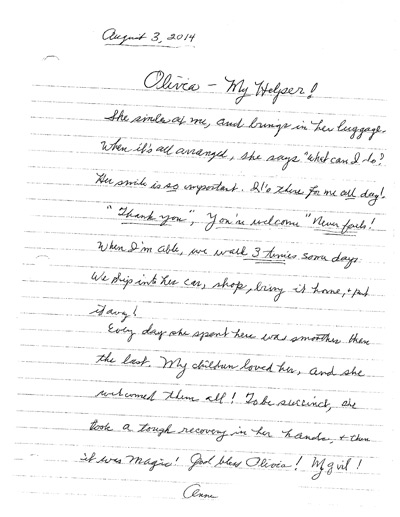 August 3, 2014
Olivia - My Helper!
She smiles at me, and brings in her luggage.
When it's all arranged, she says "what can I do?
Her smile is so important. It's there for me all day!
"Thank you", You're welcome" Never fails!
When I'm able, we walk 3 times some days
We skip into her car, shop, bring it home, + put
it away!
Every day she spent here was smoother than
the last. My children loved her, and she
welcomed them all! To be succinct, she
took a tough recovery in her hands, + then
it was Magic! God bless Olivia!
Anne